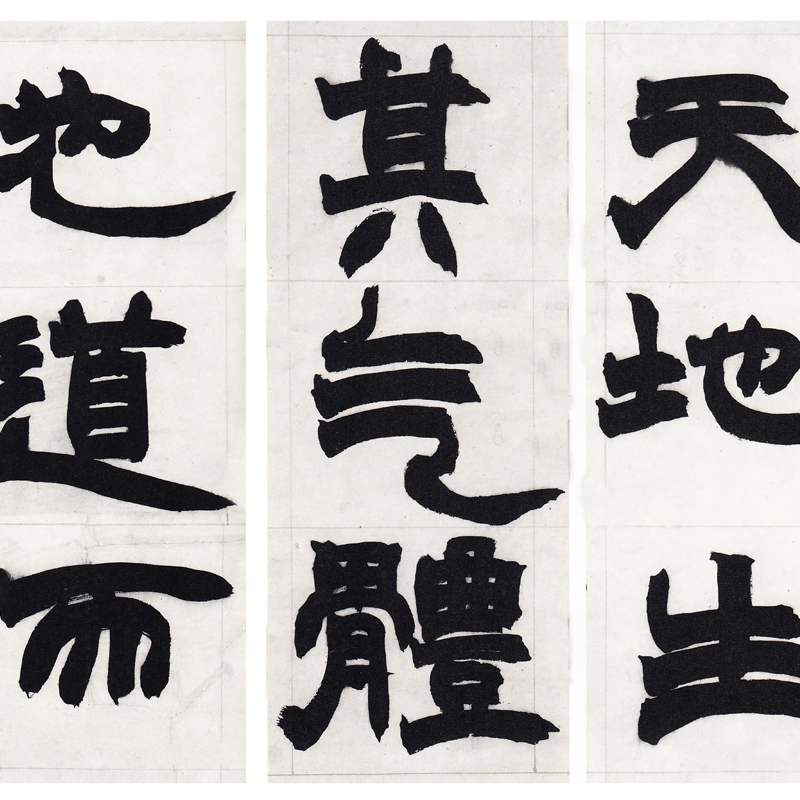 天地生
其气體
也道而